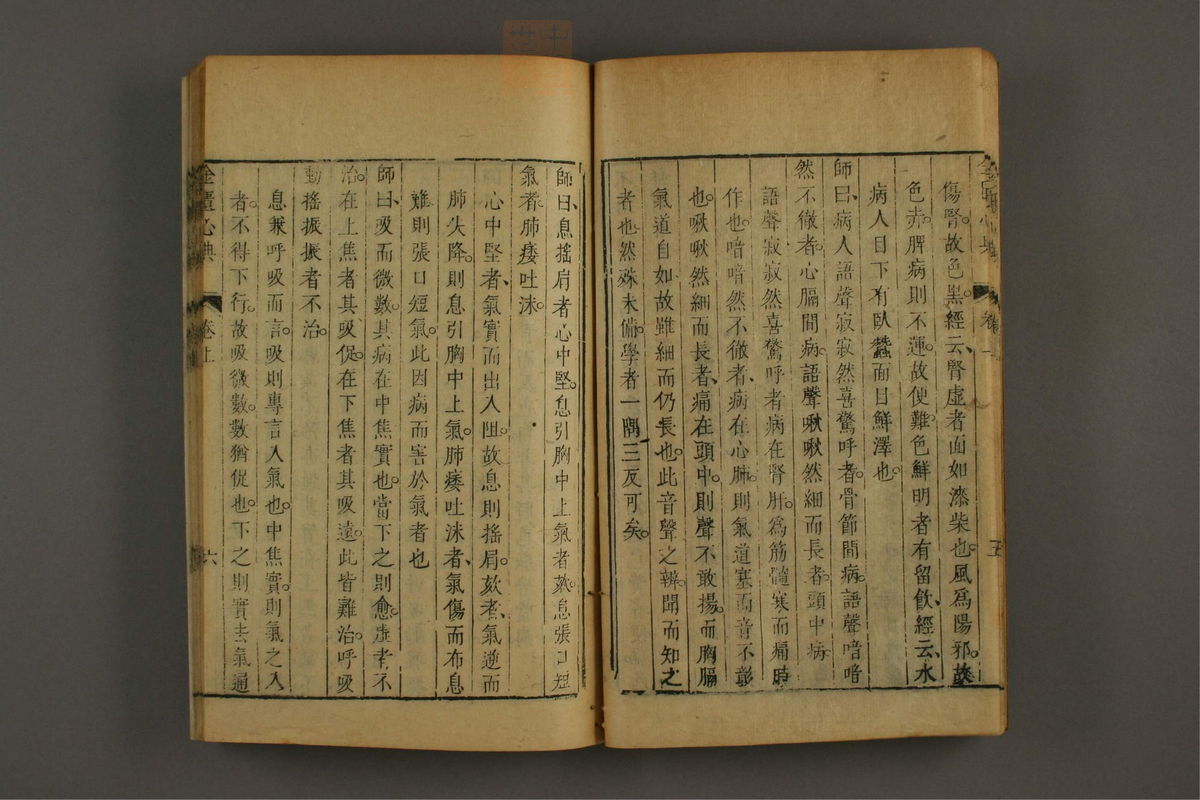 傷腎。故色黑。經云、腎虛者面如漆柴也。風為陽邪。故
色赤。脾病則不運。故便難。色鮮明者有留飲、經云、水
病人目下有臥蠶。面目鮮澤也。
師曰、病人語聲寂寂然喜驚呼者。骨節間病。語聲喑喑
然不徹者。心膈間病。語聲啾啾然細而長者。頭中病。
語聲寂寂然喜驚呼者。病在腎肝。為筋髓寒而痛時
作也。喑喑然不徹者、病在心肺。則氣道塞而音不彰
也。啾啾然細而長者、痛在頭中。則聲不敢揚。而胸膈
氣道自如。故雖細而仍長也。此音聲之辨。聞而知之
者也。然殊未備。學者一隅三反可矣。
金匱心典 卷上 五
師曰、息搖肩者。心中堅。息引胸中上氣者。欬。息張口短
氣者。肺痿吐沫。
心中堅者、氣實而出入阻。故息則搖肩。欬者、氣逆而
肺失降。則息引胸中上氣。肺痿吐沫者、氣傷而布息
難。則張口短氣。此因病而害於氣者也
師曰、吸而微數。其病在中焦實也。當下之則愈。虛者不
治。在上焦者其吸促。在下焦者其吸遠。此皆難治。呼吸
動搖振振者不治。
息兼呼吸而言。吸則專言入氣也。中焦實。則氣之入
者。不得下行。故吸微數。數猶促也。下之則實去氣通
金匱心典 卷上 六